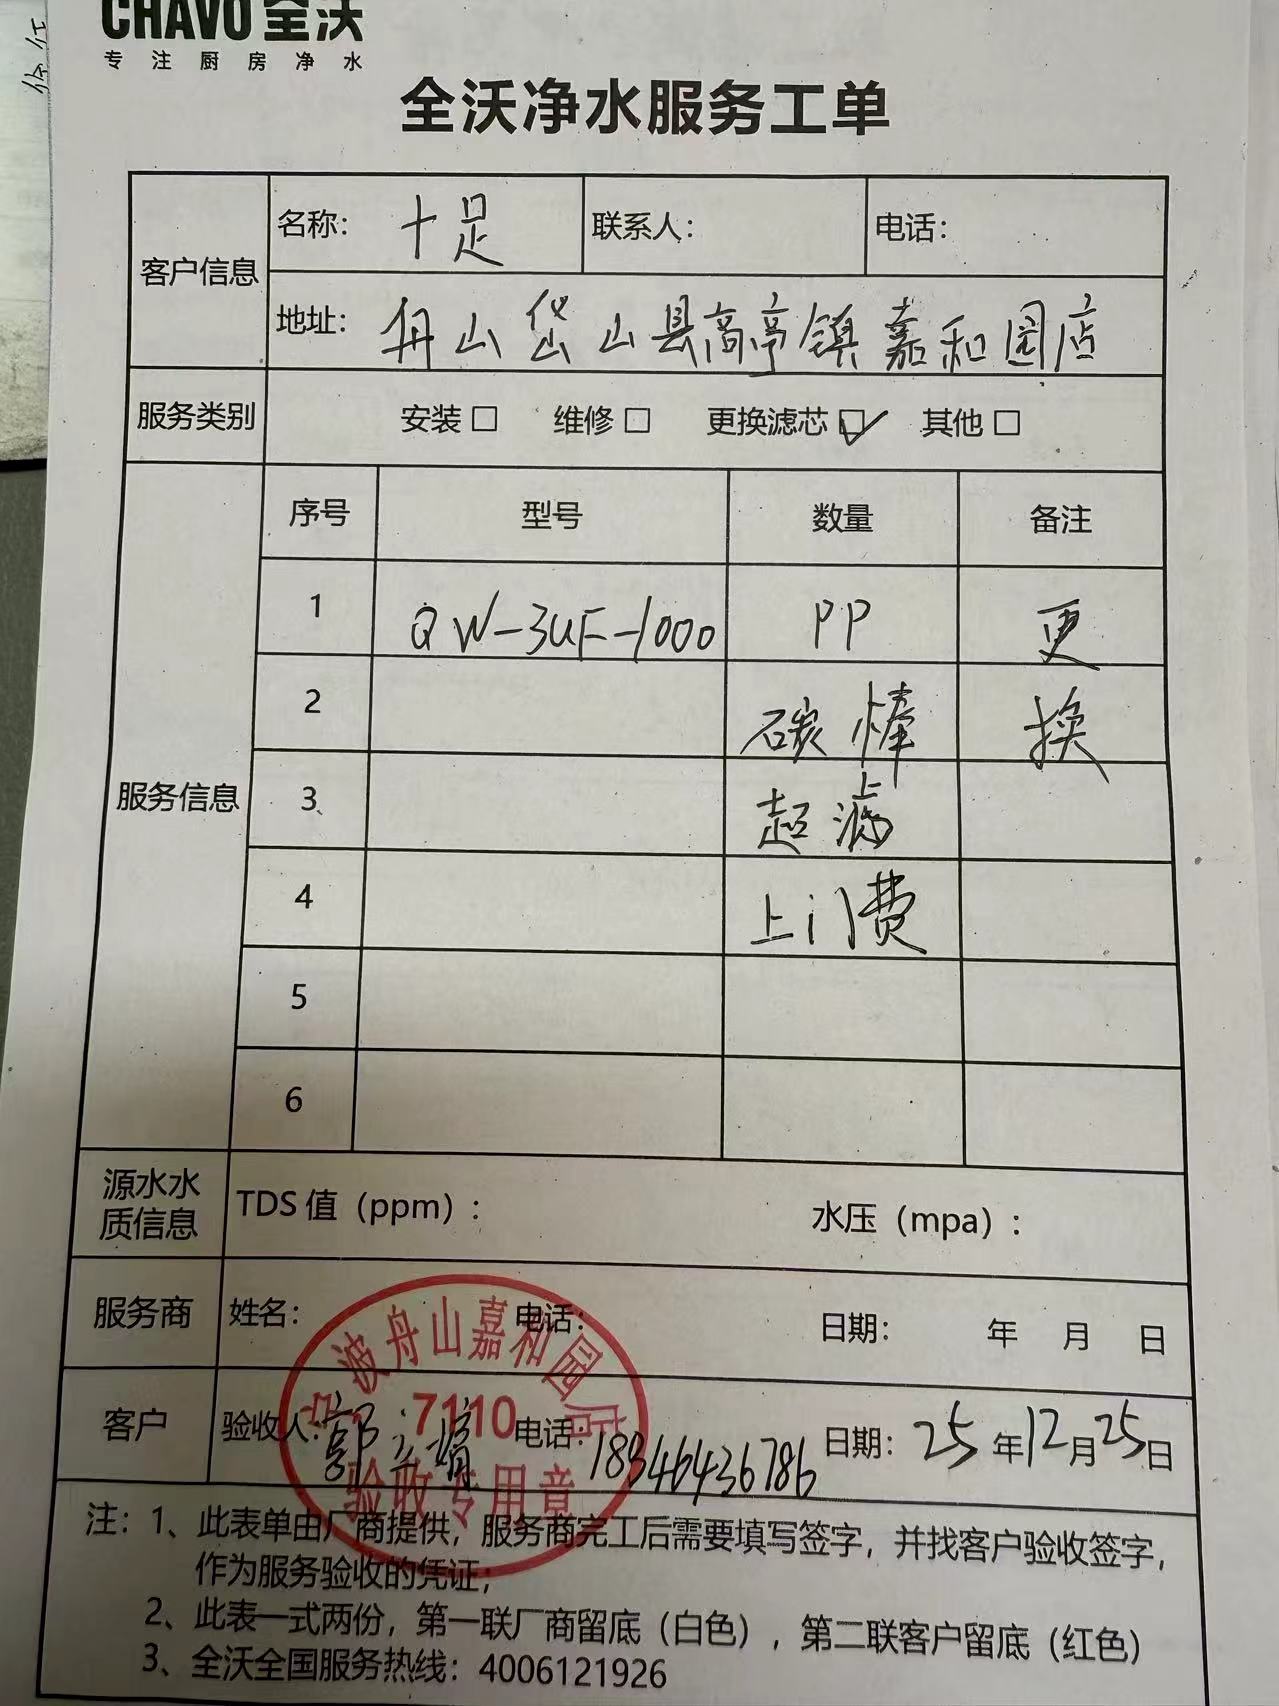 CHAVO 全沃
专注厨房净水
全沃净水服务工单
客户信息
名称: 十足
联系人:
电话:
地址: 舟山岱山县高亭镇嘉和园店
服务类别
安装□ 维修□ 更换滤芯☑ 其他□
服务信息
序号 型号 数量 备注
1 QW-3UF-1000 PP 更
2 碳棒 换
3 超滤
4 上门费
5
6
源水水质信息
TDS 值（ppm）: 水压（mpa）:
服务商 姓名: 电话: 日期: 年 月 日
宁波舟山嘉和园店
7110
验收专用章
客户 验收人: 郭 电话: 18346436786 日期: 25年12月25日
注: 1、此表单由厂商提供，服务商完工后需要填写签字，并找客户验收签字，
作为服务验收的凭证；
2、此表一式两份，第一联厂商留底（白色），第二联客户留底（红色）
3、全沃全国服务热线: 4006121926